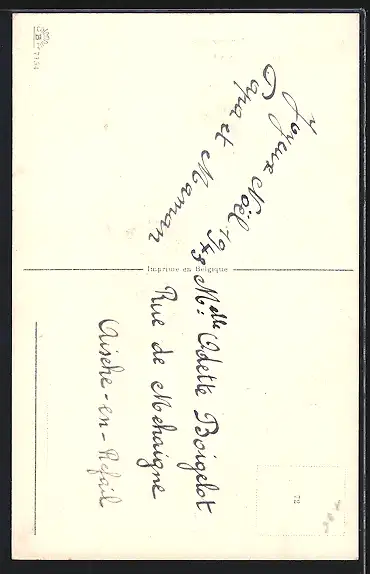 Joyeux Noël 1948
Papa et Maman
Imprimé en Belgique
Melle Odette Boigelot
Rue de Mehaigne
Aische-en-Refail
72